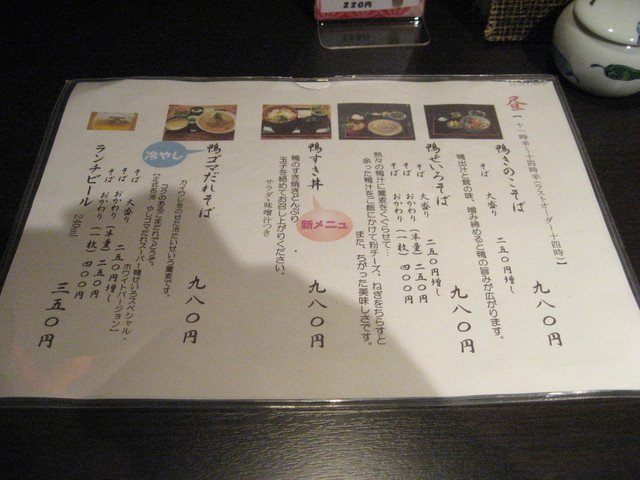 220円
昼
十一時半～十四時半(ラストオーダー十四時)
鴨きのこそば 九八〇円
そば 大盛り 二五〇円増し
鴨出汁と茸の味、噛み締めると鴨の旨みが広がります。
鴨せいろそば 九八〇円
そば 大盛り 二五〇円増し
そば おかわり(半量)二五〇円
そば おかわり(一枚)四〇〇円
熱々の鴨汁に蕎麦をくぐらせて…
余った鴨汁をご飯にかけて粉チーズ、ねぎをちらすと
また、ちがった美味しさです。
新メニュー
鴨すき丼 九八〇円
鴨のすき焼きどんぶり
玉子を絡めてお召し上がりください。
サラダ・味噌汁つき
冷やし
鴨ゴマだれそば 九八〇円
冷たいせいろ蕎麦です。
コクのあるごまだれでどうぞ。
ゴマだれスーパー鴨せいろスペシャル・
ホワイトバージョン)
そば 大盛り 二五〇円増し
そば おかわり(半量)二五〇円
そば おかわり(一枚)四〇〇円
ランチビール 240ml 三五〇円